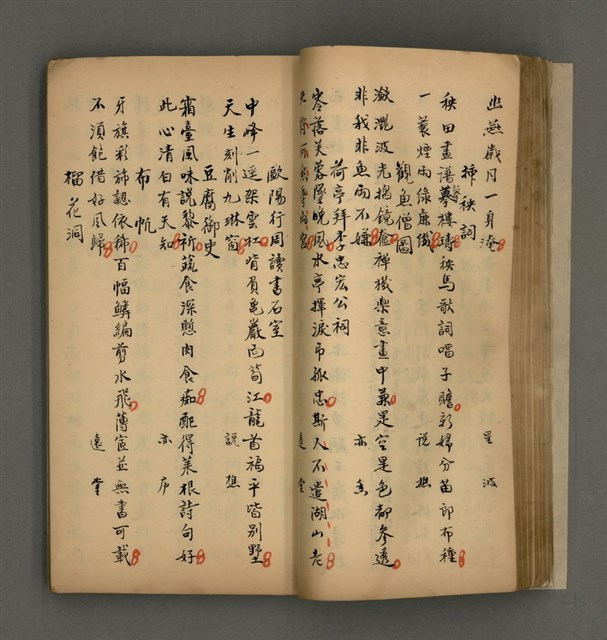 幽燕歲月一身淹 星波
插秧詞
秧田畫譜摹樓璹秧馬歌詞唱子瞻彩婦分苗郎布種
一蓑煙雨綠廉纖 說樵
觀魚僧圖
瀲灧波光揭鏡奩禪機樂意畫中兼是空是色都參透
非我非魚兩不嫌 亦香
荷亭拜李忠宏公祠
岑落芙蓉墜晚風水亭揮淚弔孤忠斯人不遣湖山老
遠堂
歐陽行周讀書石室
中峰一逕架雲杠背負龜巖凸筍江龍首福平皆別墅
天生刻削九琳窗 說樵
豆腐御史
霜臺風味說黎祈蔬食深慙肉食痴配得菜根詩句好
此心清白有天知 亦戶
布帆
牙旗彩旆認依稀百幅鱗編剪水飛薄宦並無書可載
不須飽借好風歸 遠堂
榴花洞